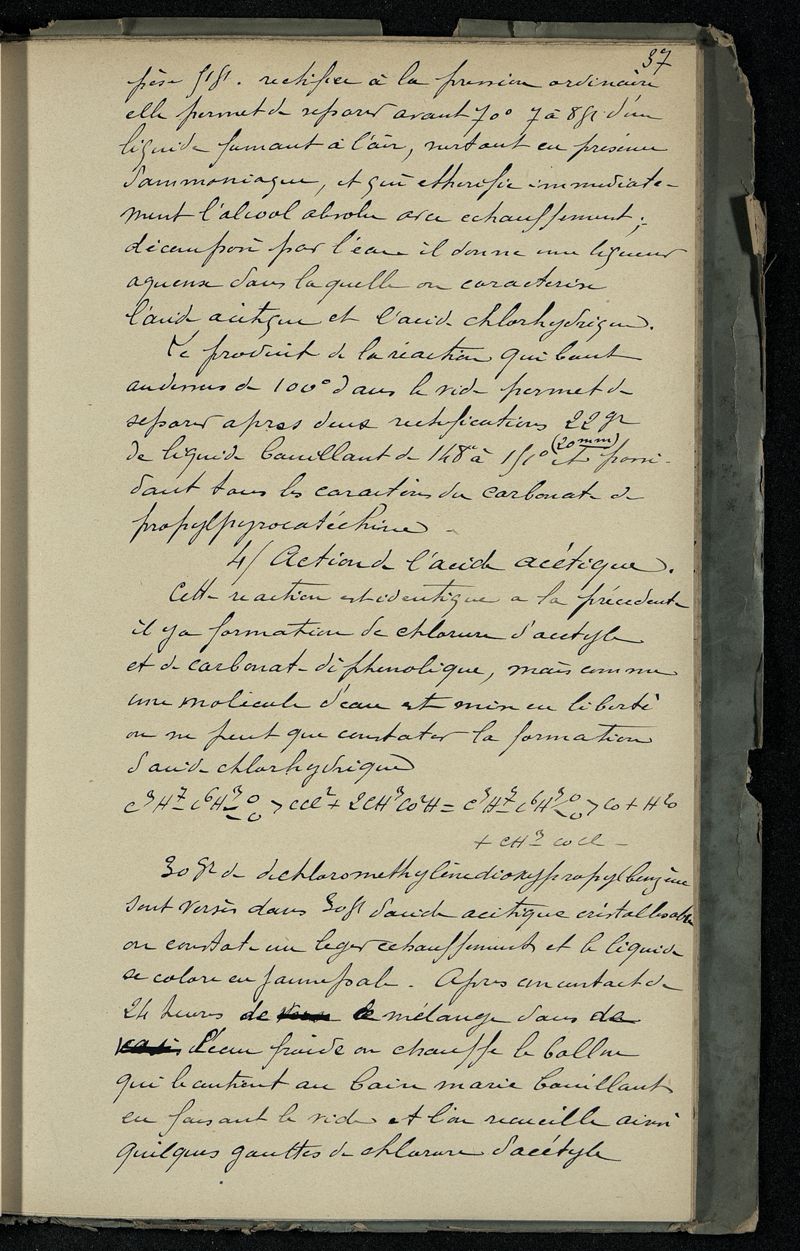 37
pèse 51gr. rectifiée à la pression ordinaire
elle permet de separer avant 70° 7 à 8gr d'un
liquide fumant à l'air, surtout en présence
d'ammoniaque, et qui etherifie immediate-
ment l'alcool absolu avec echauffement;
décomposé par l'eau il donne une liqueur
aqueuse dans laquelle on caracterise
l'acide acétique et l'acide chlorhydrique.
Le produit de la réaction qui bout
au dessus de 100° dans le vide permet de
separer apres deux rectifications 22 gr
de liquide bouillant de 148° à 151° (20mm) et possé-
dant tous les caractères du carbonate de
propylpyrocatéchine -
4/ Action de l'acide acétique.
Cette reaction est identique a la précédente
il y a formation de chlorure d'acetyle
et de carbonate diphenolique, mais comme
une molécule d'eau est mise en liberté
on ne peut que constater la formation
d'acide chlorhydrique
C³H⁷-C⁶H³-O-O>CCl²+2CH³CO²H=C³H⁷-C⁶H³-O-O>CO+H²O
+CH³COCl -
30gr de dichloromethylènedioxypropylbenzène
sont versés dans 30gr d'acide acétique cristallisable
on constate un leger echauffement et le liquide
se colore en jaune pale. Apres un contact de
24 heures de le mélange dans de
l'eau froide on chauffe le ballon
qui le contient au bain marie bouillant
en faisant le vide et l'on recueille ainsi
quelques gouttes de chlorure d'acétyle